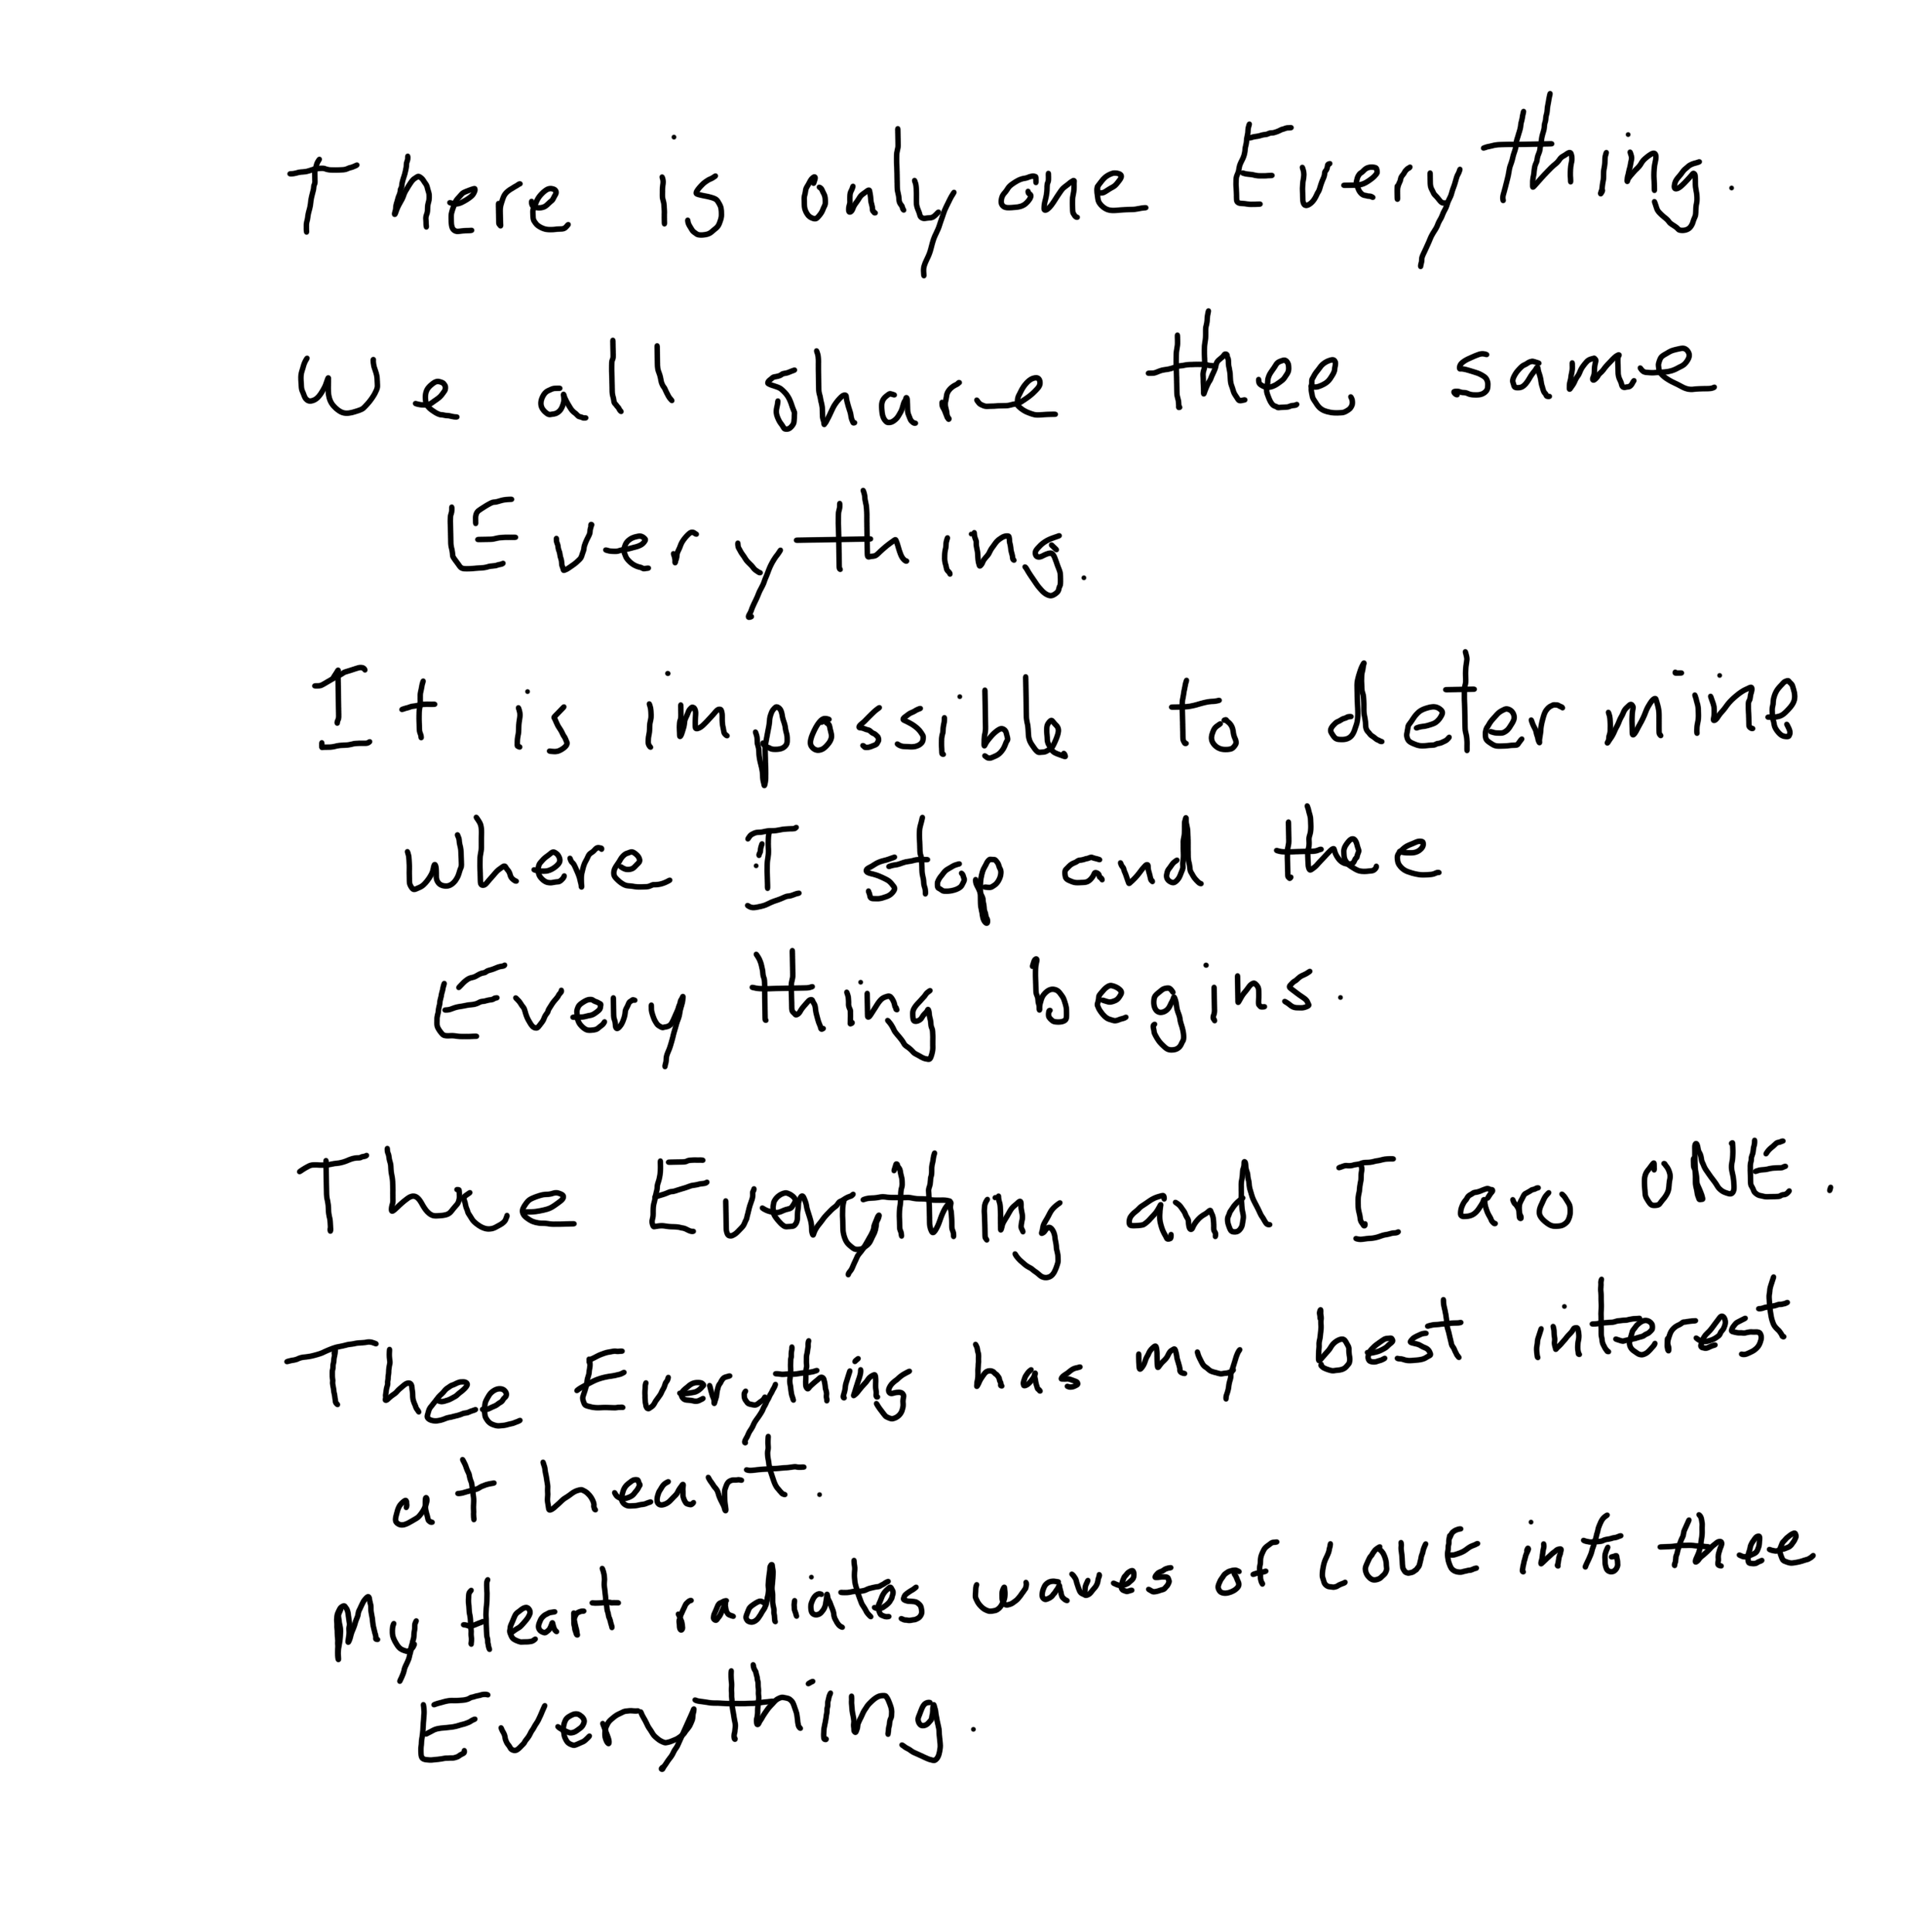 There is only one Everything.
We all share thee same
Everything.
It is impossible to determine
where I stop and thee
Everything begins.
Thee Everything and I are ONE.
Thee Everything has my best interest
at heart.
My Heart radiates waves of LOVE into thee
Everything.